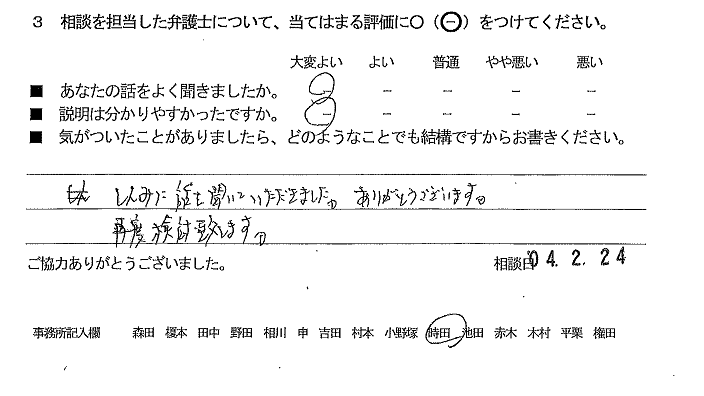 3 相談を担当した弁護士について、当てはまる評価に〇（㊀）をつけてください。
大変よい よい 普通 やや悪い 悪い
■ あなたの話をよく聞きましたか。 － － － － －
■ 説明は分かりやすかったですか。 － － － － －
■ 気がついたことがありましたら、どのようなことでも結構ですからお書きください。
しんみに話を聞いていただきました。ありがとうございます。
再度検討致します。
ご協力ありがとうございました。 相談日 04. 2. 24
事務所記入欄 森田 榎本 田中 野田 相川 申 吉田 村本 小野塚 時田 池田 赤木 木村 平栗 権田